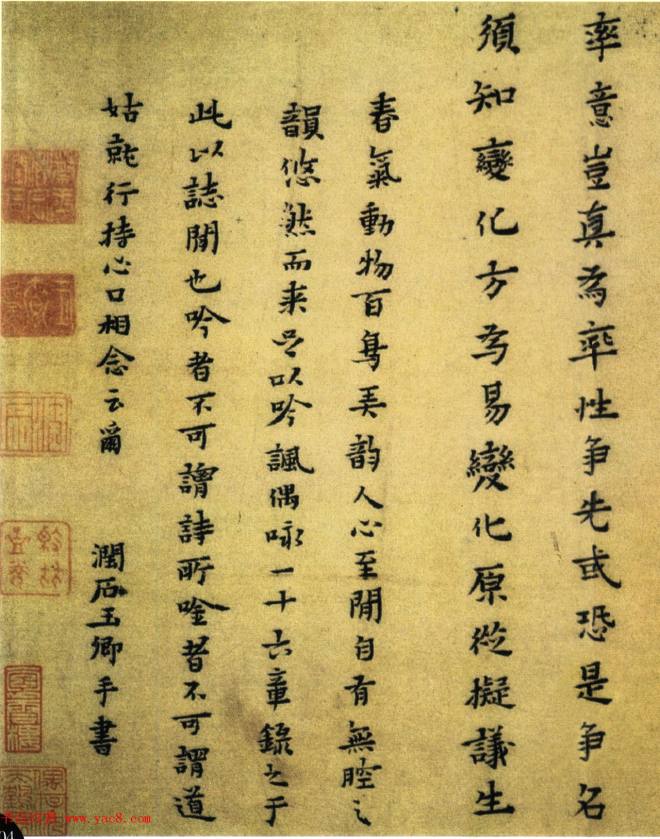 率意豈真為率性爭先或恐是爭名
須知變化方為易變化原從擬議生
春氣動物百鳥弄韵人心至閒自有無腔之
韻悠然而来是以吟諷偶咏一十六章錄之于
此以誌閒也吟者不可謂詩所唫者不可謂道
姑就行持心口相念云爾
潤石玉卿手書
www.yac8.com